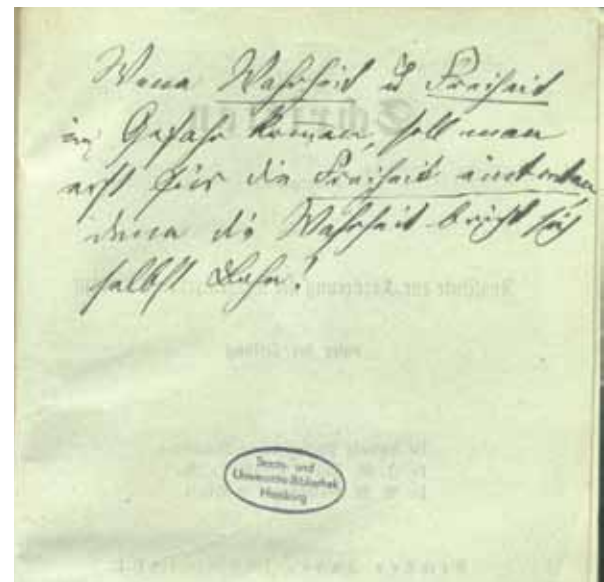 Wenn Wahrheit u Freiheit
in Gefahr kommen, soll man
erst für die Freiheit eintreten
denn die Wahrheit bricht sich
selbst Bahn!
Staats- und
Universitäts-Bibliothek
Hamburg